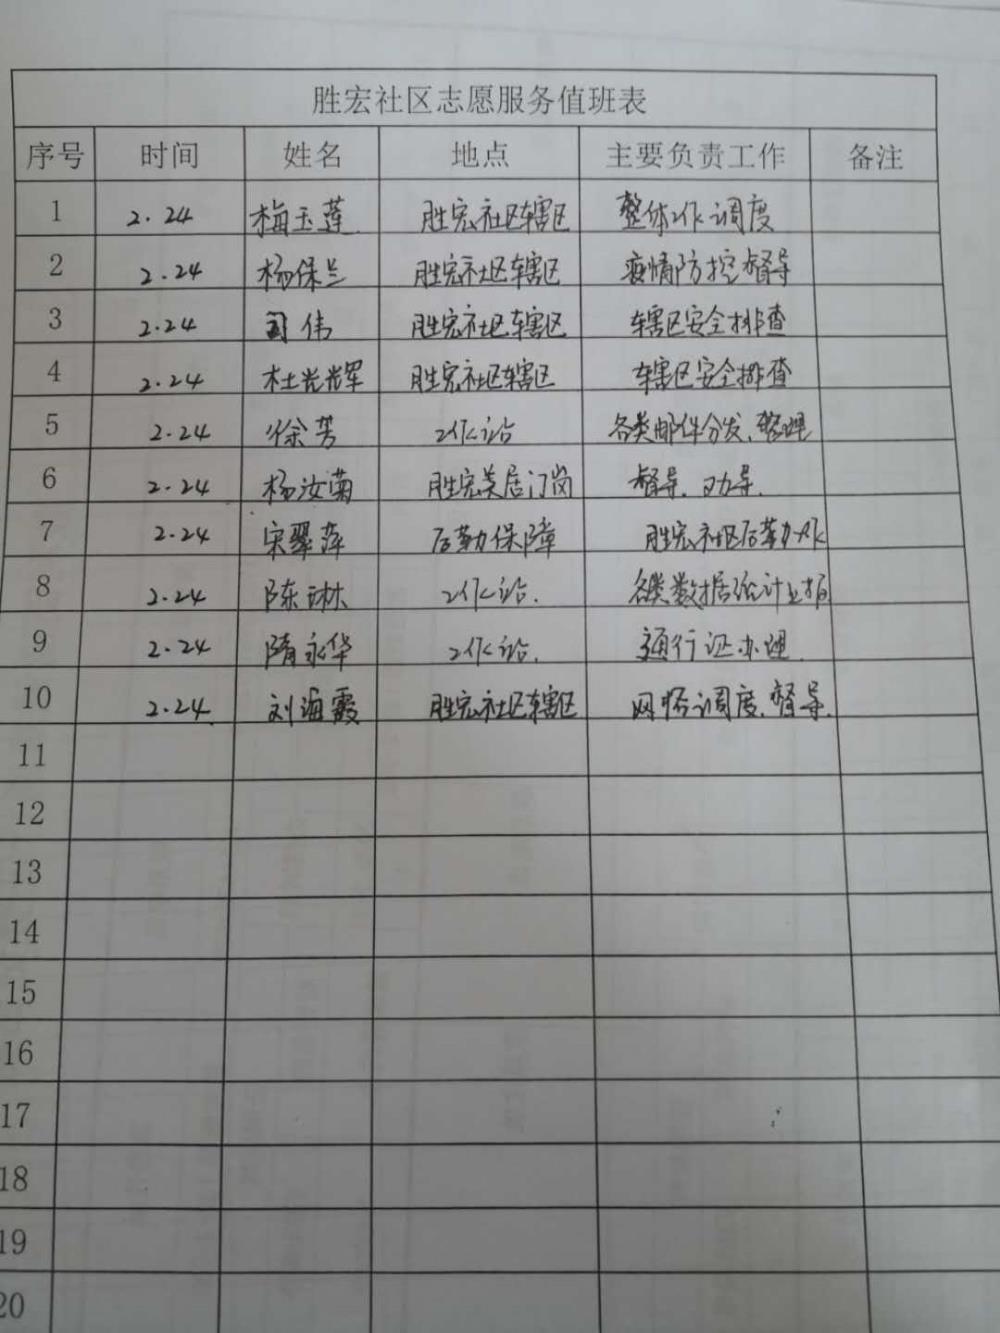 胜宏社区志愿服务值班表
序号 时间 姓名 地点 主要负责工作 备注
1 2.24 梅玉莲 胜宏社区辖区 整体工作调度
2 2.24 杨保兰 胜宏社区辖区 疫情防控督导
3 2.24 司伟 胜宏社区辖区 辖区安全排查
4 2.24 杜光辉 胜宏社区辖区 辖区安全排查
5 2.24 徐芳 工作站 各类邮件分发、整理
6 2.24 杨汝菊 胜宏美居门岗 督导、劝导.
7 2.24 宋翠萍 后勤保障 胜宏社区后勤工作
8 2.24 陈琳 工作站. 各类数据统计上报
9 2.24 隋永华 工作站. 通行证办理.
10 2.24 刘海霞 胜宏社区辖区 网格调度、督导.
11
12
13
14
15
16
17
18
19
20